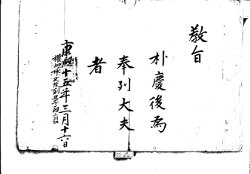 敎旨
朴慶後爲
奉列大夫
者
康熙十五年三月十一日